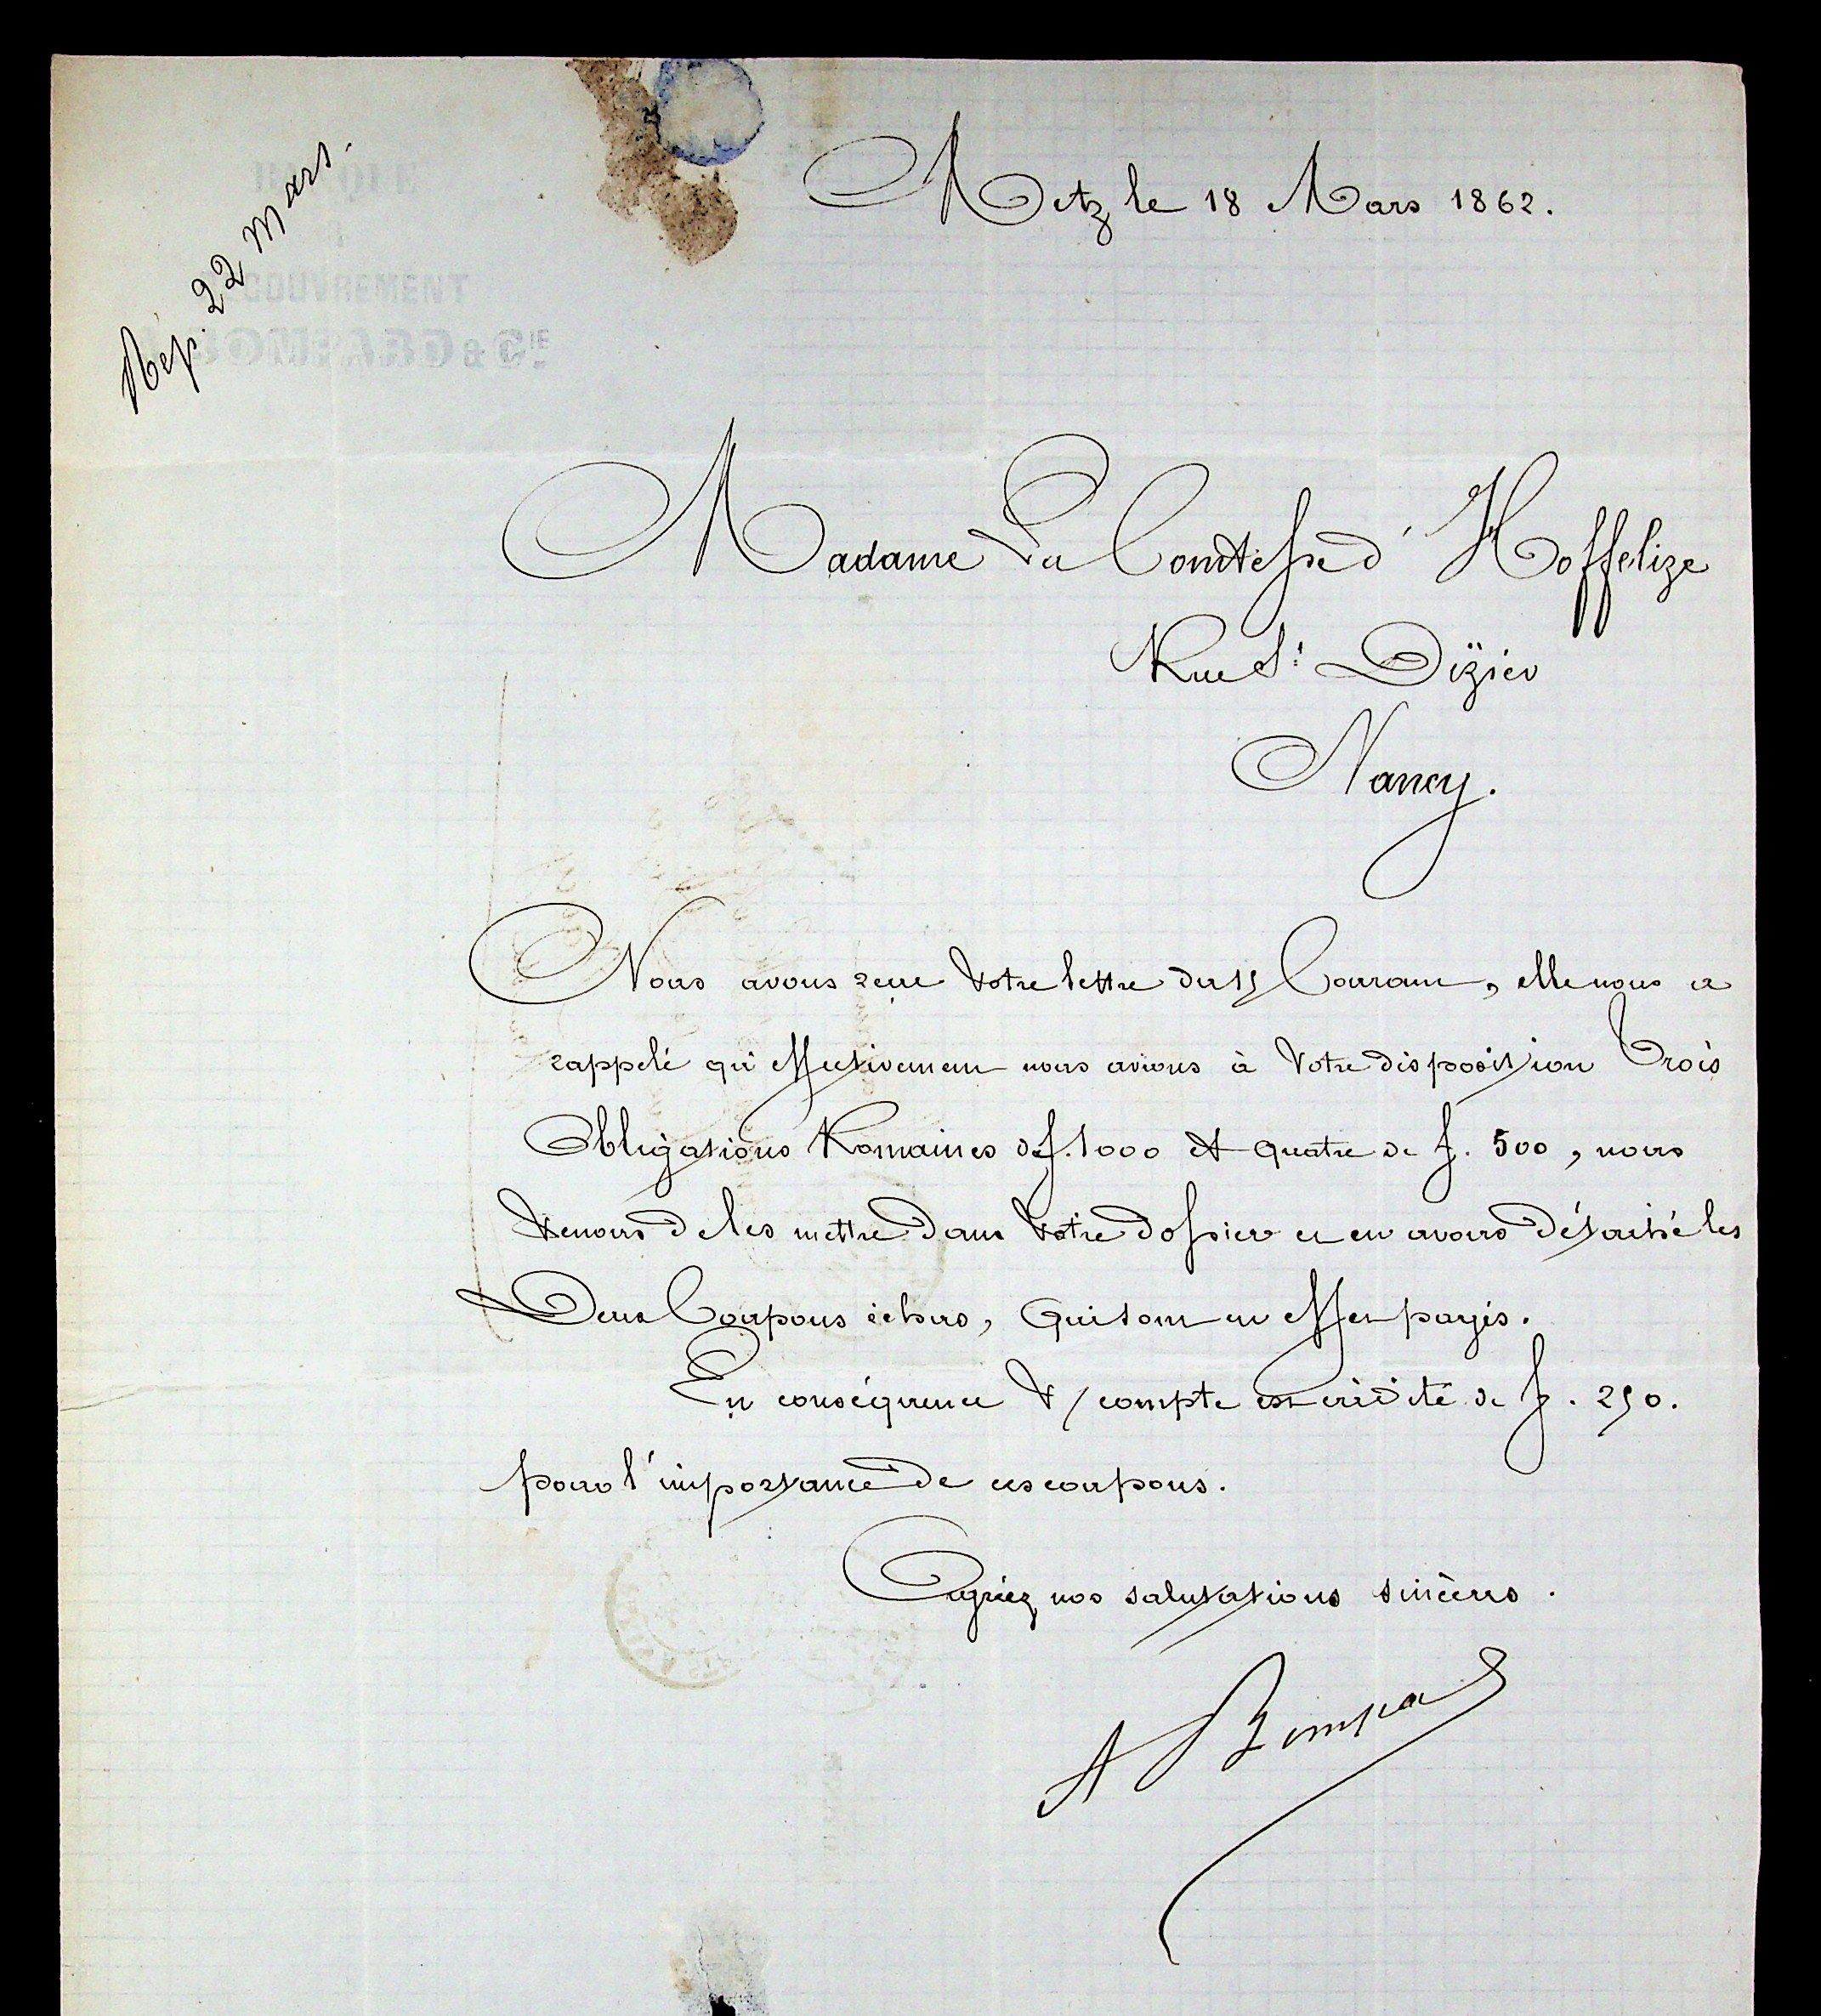 Rép. 22 Mars.
BANQUE
RECOUVREMENT
BOMPARD & CIE
Metz le 18 Mars 1862.
Madame La Comtesse d'Hoffelize
Rue St Dizier
Nancy.
Nous avons reçu votre lettre du 15 Courant, elle nous a
rappelé qu'effectivement nous avions à votre disposition Trois
Obligations Romaines de f. 1000 et quatre de f. 500, nous
venons de les mettre dans votre dossier et en avons détaché les
Deux Coupons échus, qui sont en effet payés.
En conséquence V/ compte est crédité de f. 250.
pour l'importance de ces coupons.
Agréez nos salutations sincères.
A Bompard